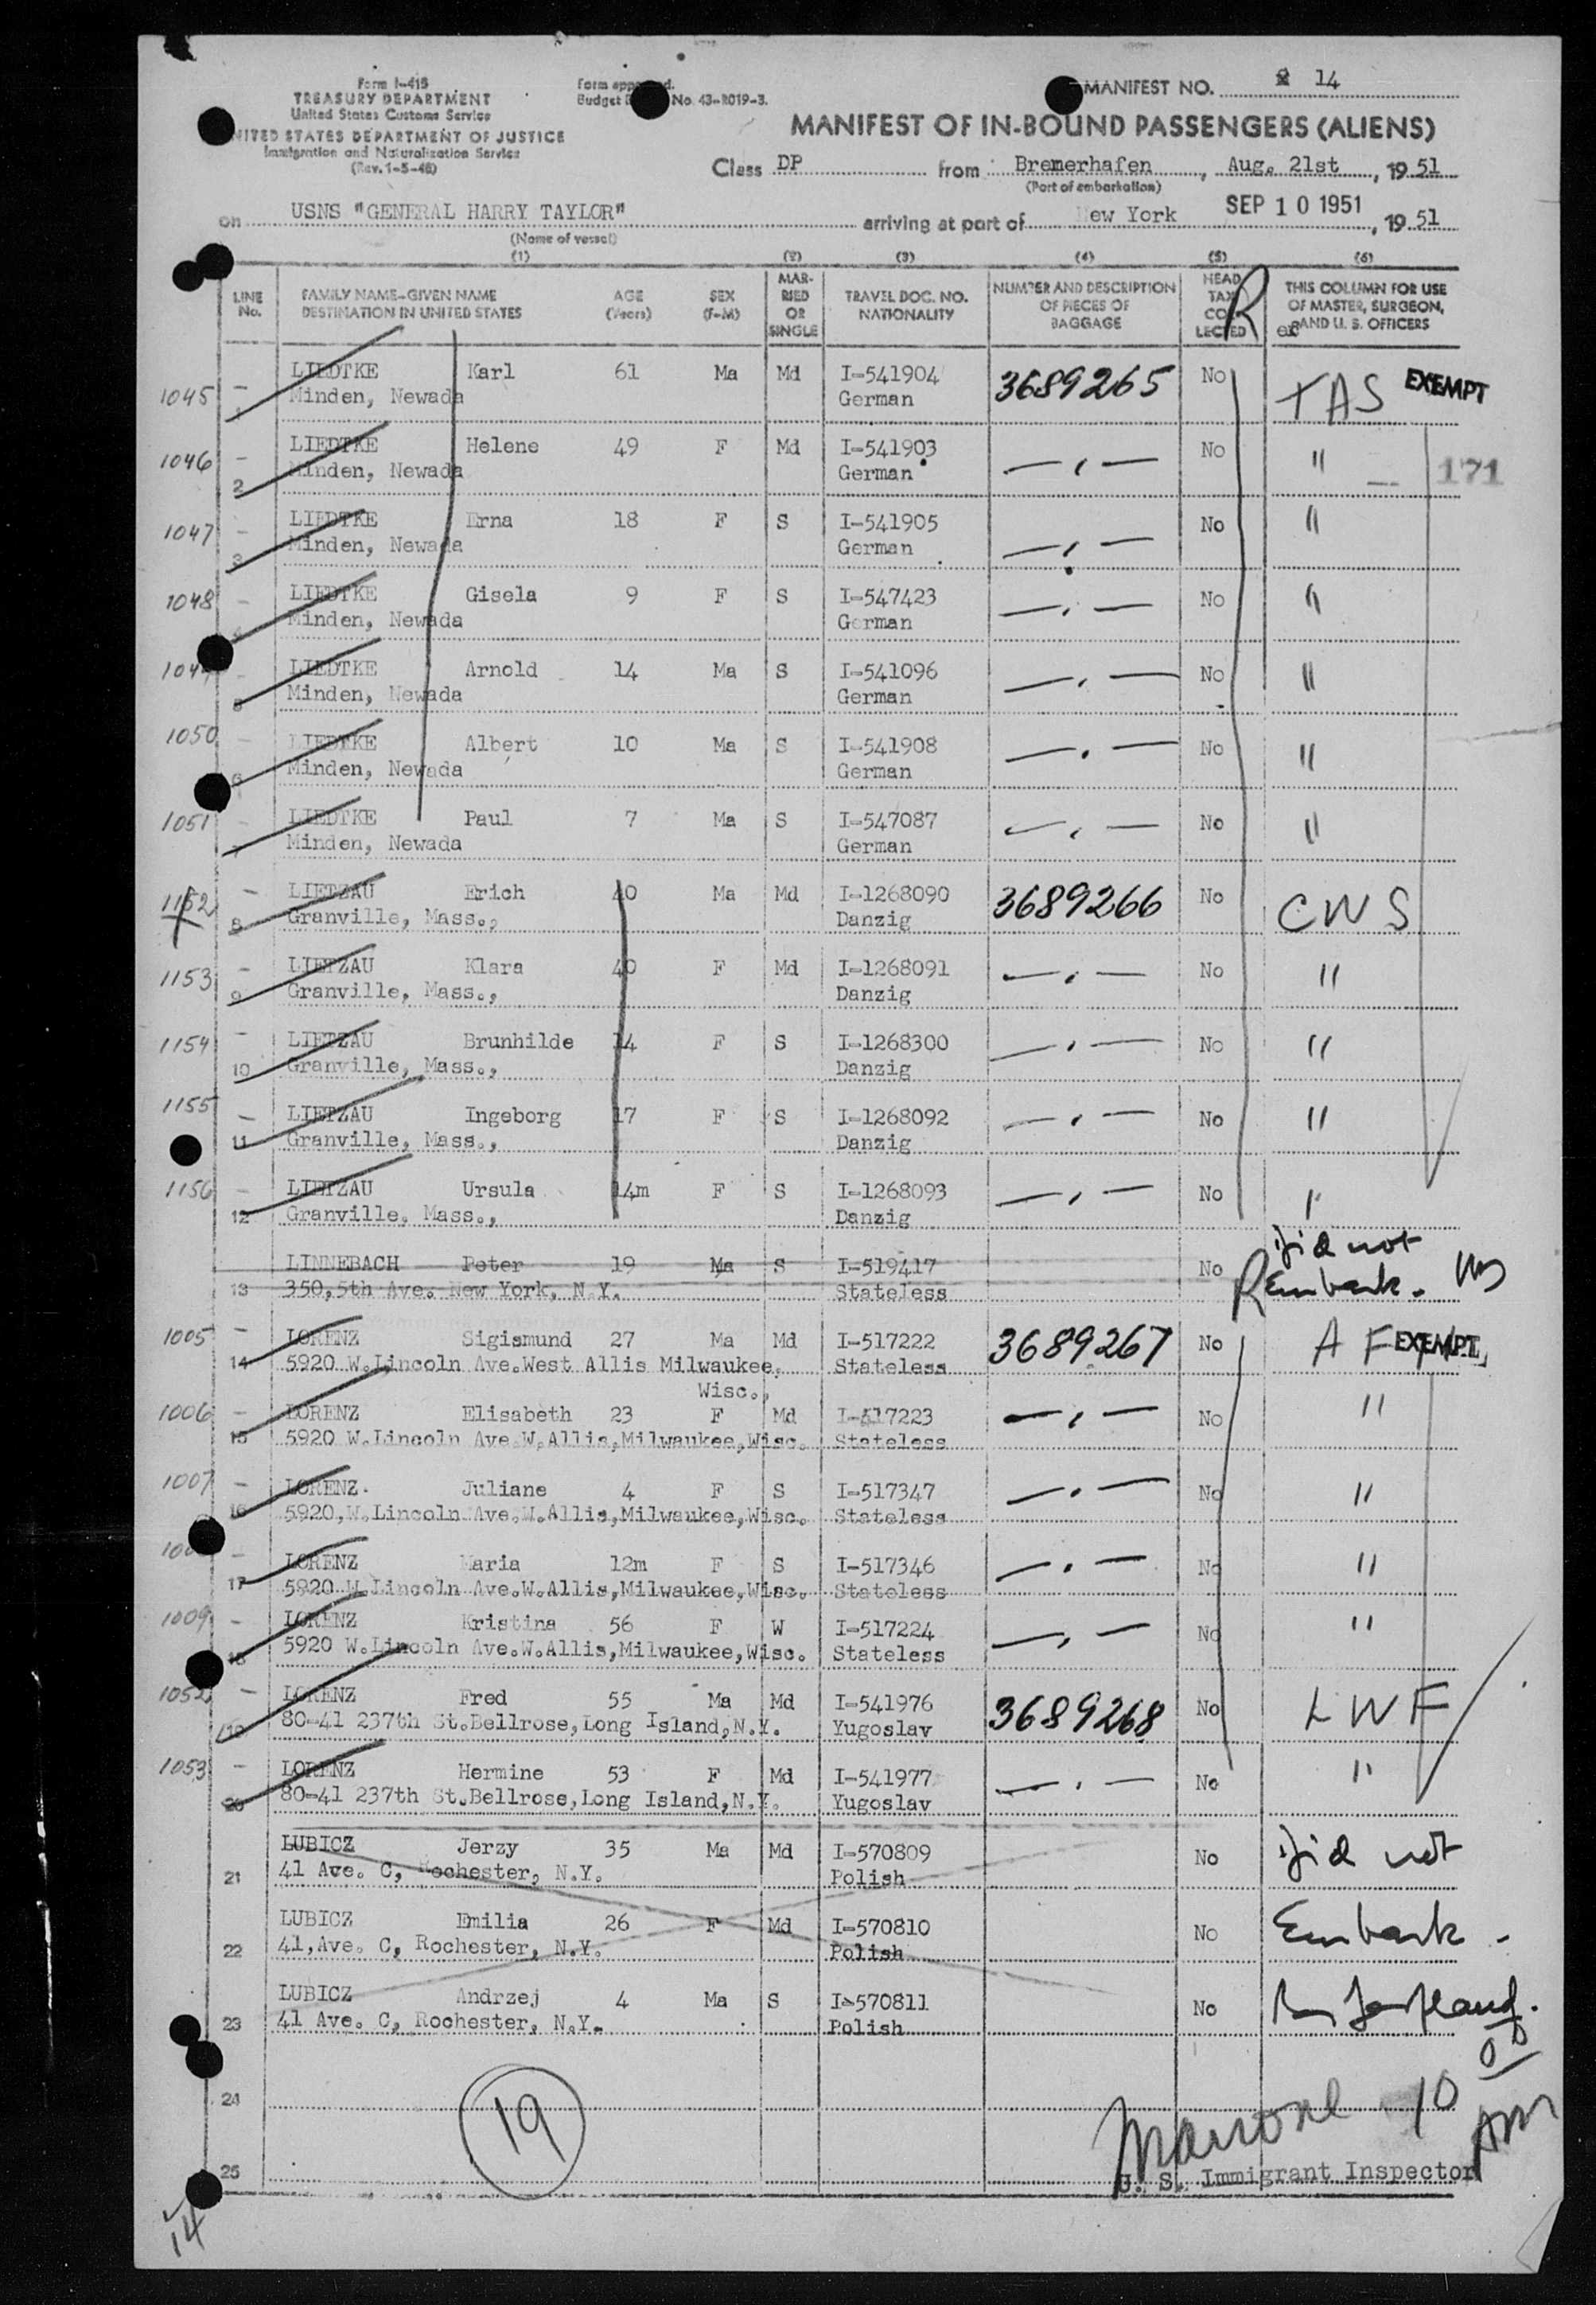 Form I-415
TREASURY DEPARTMENT
United States Customs Service
UNITED STATES DEPARTMENT OF JUSTICE
Immigration and Naturalization Service
(Rev. 1-5-48)
Form approved.
Budget No. 43-R019-3.
MANIFEST NO. 14
MANIFEST OF IN-BOUND PASSENGERS (ALIENS)
Class DP from Bremerhafen, Aug. 21st, 19 51
(Port of embarkation)
on USNS "GENERAL HARRY TAYLOR" arriving at port of New York SEP 10 1951, 19 51
(Name of vessel)
(1) (2) (3) (4) (5) (6)
LINE No. FAMILY NAME-GIVEN NAME DESTINATION IN UNITED STATES AGE (Years) SEX (F-M) MARRIED OR SINGLE TRAVEL DOC. NO. NATIONALITY NUMBER AND DESCRIPTION OF PIECES OF BAGGAGE HEAD TAX COLLECTED THIS COLUMN FOR USE OF MASTER, SURGEON, AND U. S. OFFICERS
R
1045 1 LIEDTKE Karl 61 Ma Md I-541904 3689265 No TAS EXEMPT
Minden, Newada German
1046 2 LIEDTKE Helene 49 F Md I-541903 — . — No "
Minden, Newada German 171
1047 3 LIEDTKE Erna 18 F S I-541905 — . — No "
Minden, Newada German
1048 LIEDTKE Gisela 9 F S I-547423 — . — No "
Minden, Newada German
LIEDTKE Arnold 14 Ma S I-541096 — . — No "
Minden, Newada German
1050 6 LIEDTKE Albert 10 Ma S I-541908 — . — No "
Minden, Newada German
1051 7 LIEDTKE Paul 7 Ma S I-547087 — . — No "
Minden, Newada German
1152 8 LIETZAU Erich 40 Ma Md I-1268090 3689266 No CWS
Granville, Mass., Danzig
1153 9 LIETZAU Klara 40 F Md I-1268091 — . — No "
Granville, Mass., Danzig
1154 10 LIETZAU Brunhilde 14 F S I-1268300 — . — No "
Granville, Mass., Danzig
1155 11 LIETZAU Ingeborg 17 F S I-1268092 — . — No "
Granville, Mass., Danzig
1156 12 LIETZAU Ursula 14m F S I-1268093 — . — No "
Granville, Mass., Danzig
13 LINNEBACH Peter 19 Ma S I-519417 No Did not
350,5th Ave. New York, N.Y. Stateless R Embark.
1005 14 LORENZ Sigismund 27 Ma Md I-517222 3689267 No EXEMPT
5920 W.Lincoln Ave.West Allis Milwaukee, Stateless
Wisc.,
1006 15 LORENZ Elisabeth 23 F Md I-517223 — . — No "
5920 W.Lincoln Ave.W.Allis,Milwaukee,Wisc. Stateless
1007 16 LORENZ. Juliane 4 F S I-517347 — . — No "
5920,W.Lincoln Ave.W.Allis,Milwaukee,Wisc. Stateless
17 LORENZ Maria 12m F S I-517346 — . — No "
5920 W.Lincoln Ave.W.Allis,Milwaukee,Wisc. Stateless
1009 18 LORENZ Kristina 56 F W I-517224 — . — No "
5920 W.Lincoln Ave.W.Allis,Milwaukee,Wisc. Stateless
1052 19 LORENZ Fred 55 Ma Md I-541976 3689268 No LWF
80-41 237th St.Bellrose,Long Island,N.Y. Yugoslav
1053 20 LORENZ Hermine 53 F Md I-541977 — . — No "
80-41 237th St.Bellrose,Long Island,N.Y. Yugoslav
LUBICZ Jerzy 35 Ma Md I-570809 No Did not
21 41 Ave. C, Rochester, N.Y. Polish
LUBICZ Emilia 26 F Md I-570810 No Embark.
22 41,Ave. C, Rochester, N.Y. Polish
LUBICZ Andrzej 4 Ma S I-570811 No
23 41 Ave. C, Rochester, N.Y. Polish
24
19
10 00 AM
25
U. S. Immigrant Inspector
14